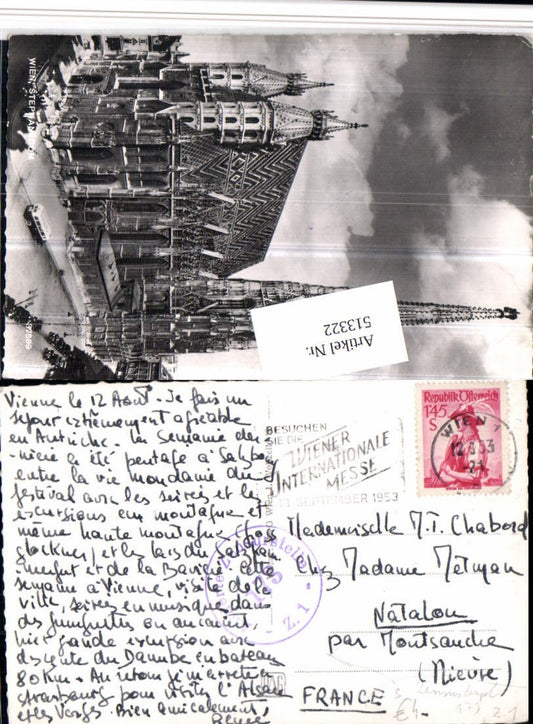 WIEN, STEPHANSDOM
Artikel Nr.
513322
Vienne le 12 Août. Je fais un
séjour extrêmement agréable
en Autriche. La semaine der-
nière a été partagée à Salzbourg
entre la vie mondaine du
festival avec les soirées et les
excursions en montagne et
même haute montagne (Gross
glockner) et les lacs du Salzkam
mergut et de la Bavière. Cette
semaine à Vienne, visite de la
ville, soirées en musique dans
des guinguettes ou au concert,
hier grande excursion avec
descente du Danube en bateau
80 Km. Au retour je m'arrête à
Strasbourg pour visiter l'Alsace
et les Vosges. Bien amicalement
Renée
BESUCHEN
SIE DIE
WIENER
INTERNATIONALE
MESSE
13. SEPTEMBER 1953
Republik Österreich
1.45
S
WIEN 1
Mademoiselle M.T. Chabord
Chez Madame Métman
Natalou
par Montsauche
(Nièvre)
FRANCE
Z. 1